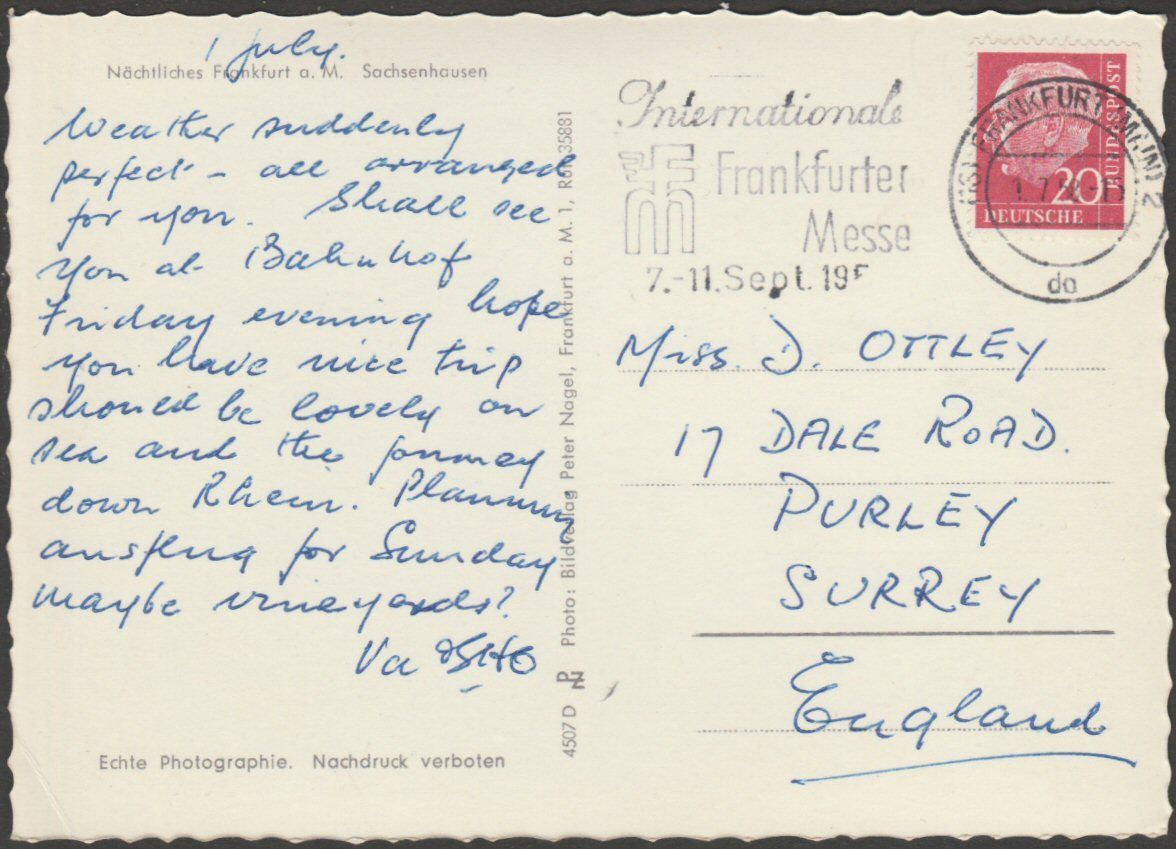 1 July.
Nächtliches Frankfurt a. M. Sachsenhausen
Weather suddenly
perfect - all arranged
for you. Shall see
you at Bahnhof
Friday evening hope
you have nice trip
should be lovely on
sea and the journey
down Rhein. Planning
ausflug for Sunday
maybe vineyards?
Va
Echte Photographie. Nachdruck verboten
4507 D
Photo: Bildverlag Peter Nagel, Frankfurt a. M. 1, 35881
Internationale
Frankfurter
Messe
7.-11. Sept. 195
FRANKFURT (MAIN) 2
1.7.58.-
da
BUNDESPOST
20
DEUTSCHE
Miss. D. OTTLEY
17 DALE ROAD.
PURLEY
SURREY
England